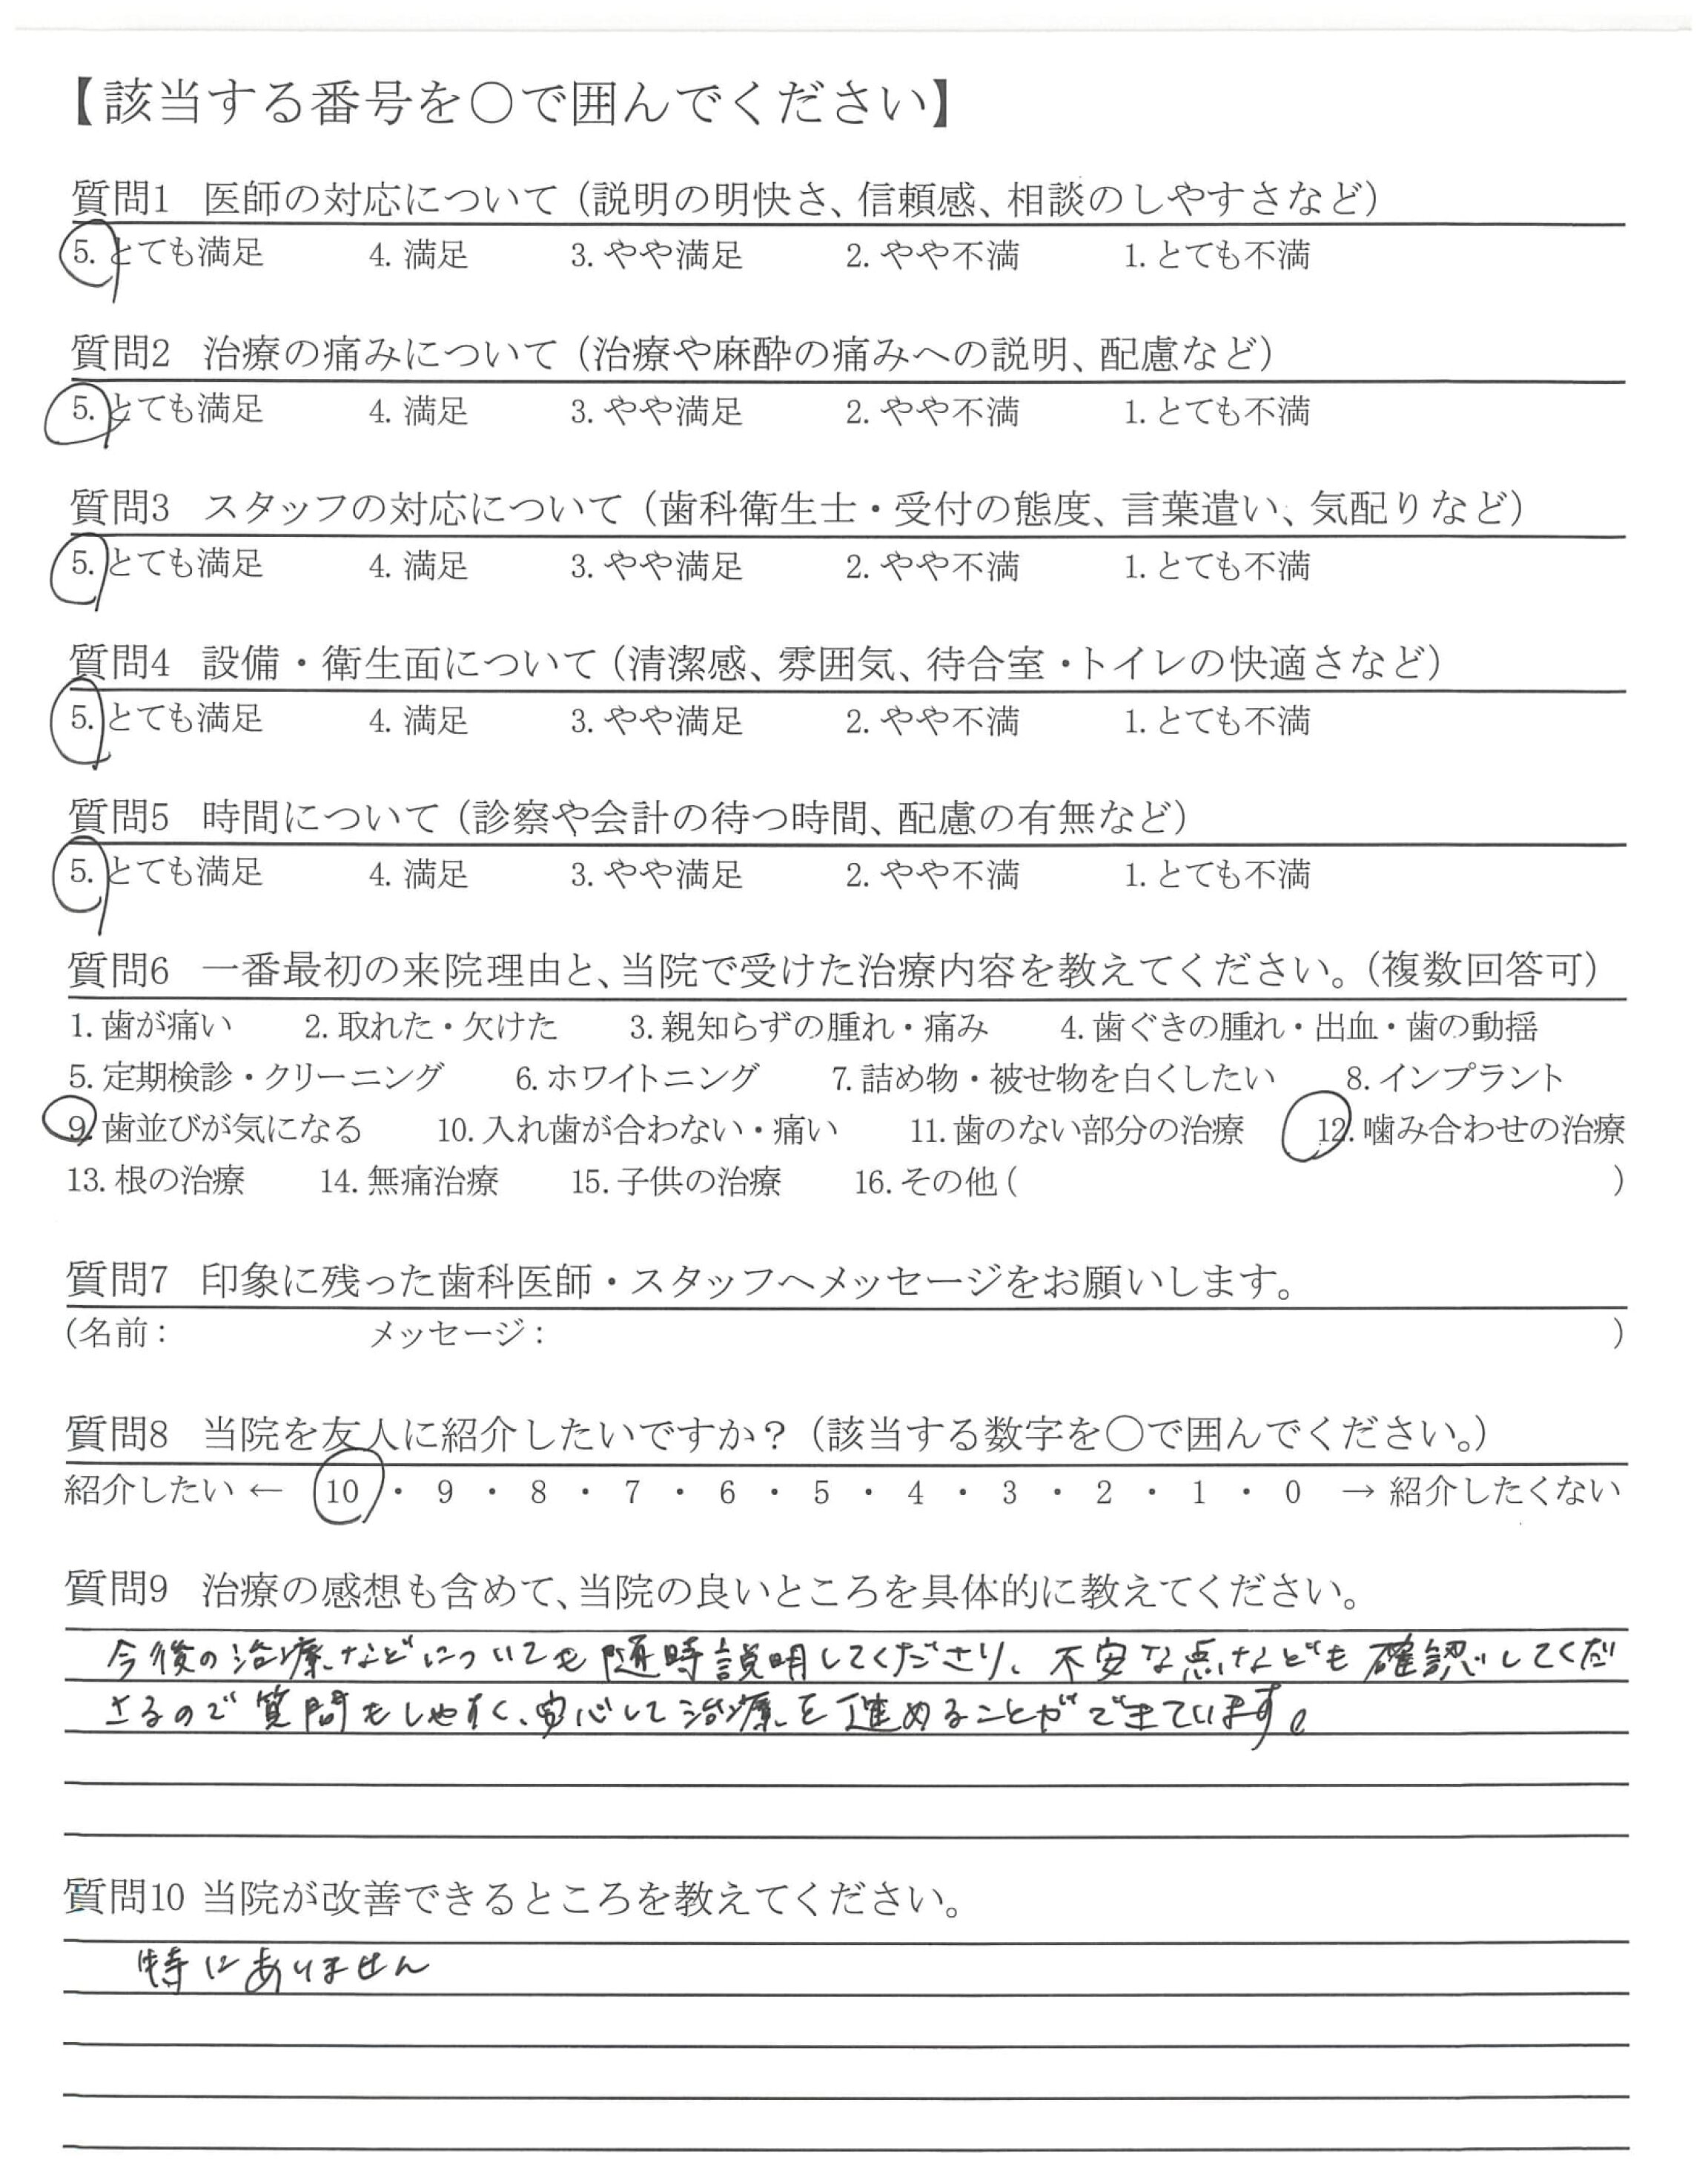 【該当する番号を○で囲んでください】
質問1 医師の対応について（説明の明快さ、信頼感、相談のしやすさなど）
5. とても満足 4. 満足 3. やや満足 2. やや不満 1. とても不満
質問2 治療の痛みについて（治療や麻酔の痛みへの説明、配慮など）
5. とても満足 4. 満足 3. やや満足 2. やや不満 1. とても不満
質問3 スタッフの対応について（歯科衛生士・受付の態度、言葉遣い、気配りなど）
5. とても満足 4. 満足 3. やや満足 2. やや不満 1. とても不満
質問4 設備・衛生面について（清潔感、雰囲気、待合室・トイレの快適さなど）
5. とても満足 4. 満足 3. やや満足 2. やや不満 1. とても不満
質問5 時間について（診察や会計の待つ時間、配慮の有無など）
5. とても満足 4. 満足 3. やや満足 2. やや不満 1. とても不満
質問6 一番最初の来院理由と、当院で受けた治療内容を教えてください。（複数回答可）
1. 歯が痛い 2. 取れた・欠けた 3. 親知らずの腫れ・痛み 4. 歯ぐきの腫れ・出血・歯の動揺
5. 定期検診・クリーニング 6. ホワイトニング 7. 詰め物・被せ物を白くしたい 8. インプラント
9. 歯並びが気になる 10. 入れ歯が合わない・痛い 11. 歯のない部分の治療 12. 噛み合わせの治療
13. 根の治療 14. 無痛治療 15. 子供の治療 16. その他（ ）
質問7 印象に残った歯科医師・スタッフへメッセージをお願いします。
（名前： メッセージ： ）
質問8 当院を友人に紹介したいですか？（該当する数字を○で囲んでください。）
紹介したい ← 10 ・ 9 ・ 8 ・ 7 ・ 6 ・ 5 ・ 4 ・ 3 ・ 2 ・ 1 ・ 0 → 紹介したくない
質問9 治療の感想も含めて、当院の良いところを具体的に教えてください。
今後の治療などについても随時説明してくださり、不安な点なども確認してくだ
さるので質問もしやすく、安心して治療を進めることができています。
質問10 当院が改善できるところを教えてください。
特にありません